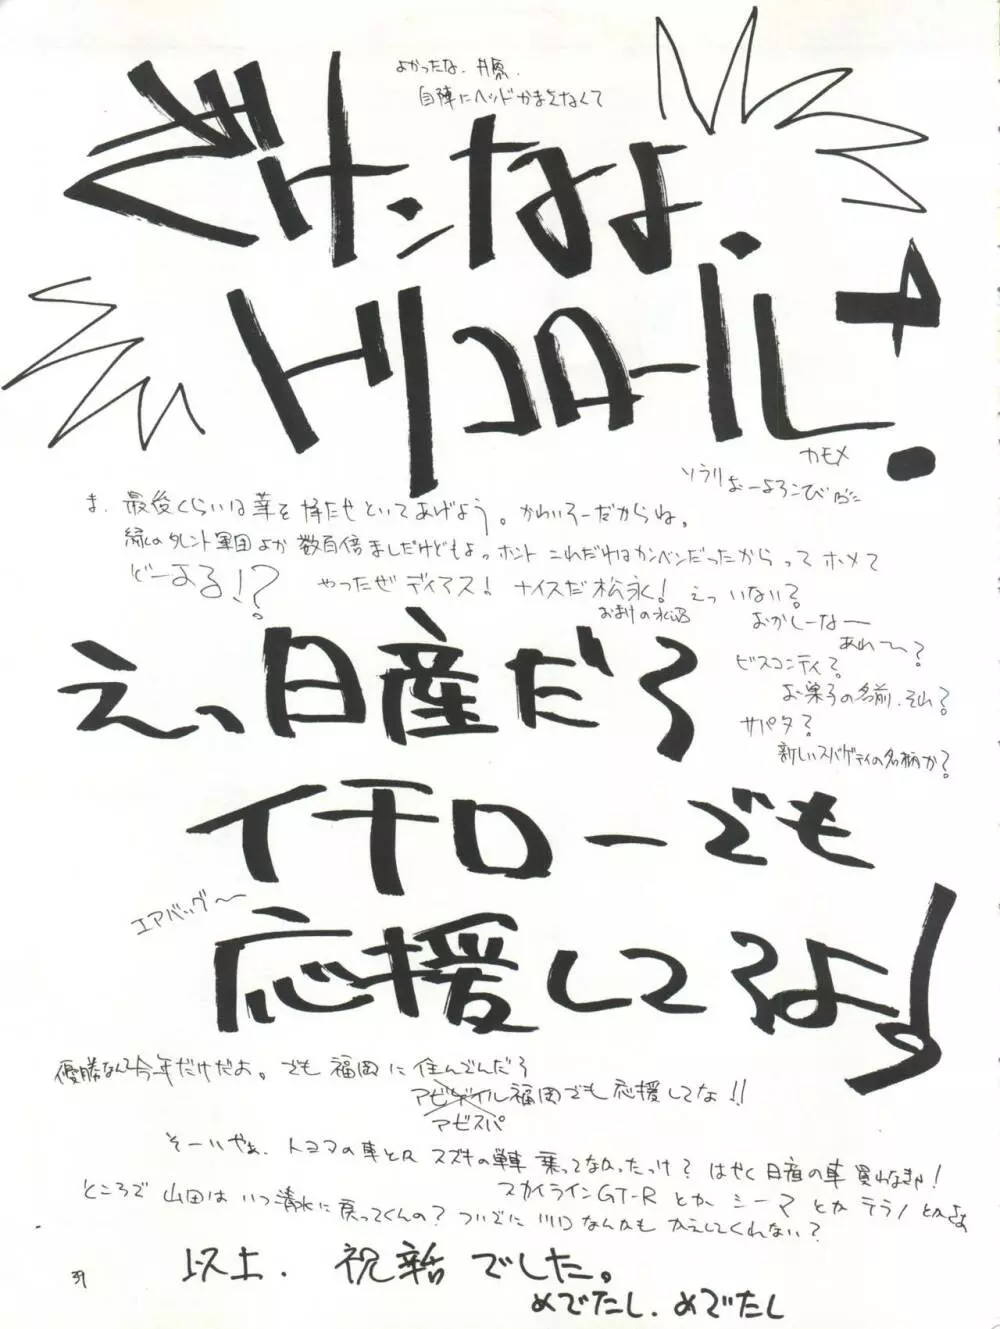 よかったな、井原、
自陣にヘッドかまえなくて
ざけんなよ、
トリコロール!
カモメ
ソラリよーよろこび
ま、最後くらいは華を持たせといてあげよう。かわいそーだからね。
緑のタレント軍団よか数百倍ましだけどもよ。ホント これだけはカンベンだったからってホメて
どーする!? やったぜディアス! ナイスだ松永! えっ いない?
おまけの水沼
おかしーなー
あれ〜?
ビスコンティ?
お菓子の名前、それ?
サパタ?
新しいスパゲティの名柄か?
えっ、日産だろ
イチローでも
エアバッグ〜
応援してろよ!
優勝なんて今年だけだよ。でも 福岡に 住んでんだろ
福岡でも応援してな!!
アビスパ
そーいやぁ、トヨタの車とか スズキの単車 乗ってなかったっけ? はやく日産の車 買わなきゃ!
スカイラインGT-R とか シーマ とか テラノ とかよぉ
ところで 山田は いつ清水に戻ってくんの? ついでに 川口なんかも かえしてくれない?
以上、祝辞でした。
めでたし、めでたし
39